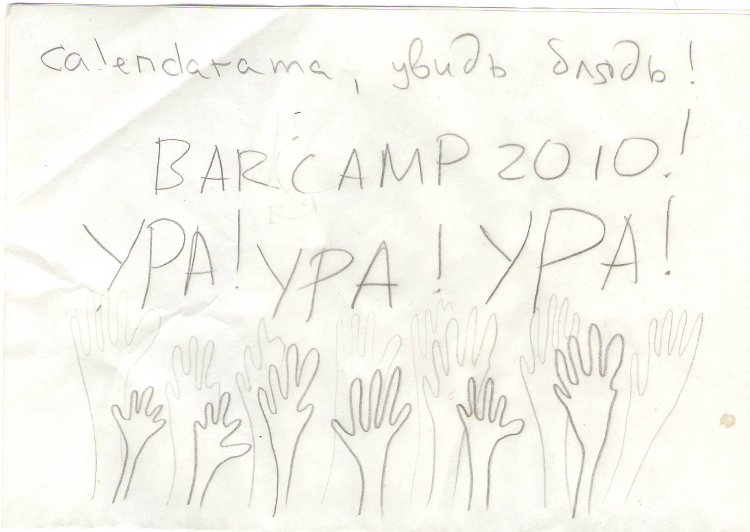 calendarama, увидь блядь!
BARCAMP 2010!
УРА! УРА! УРА!